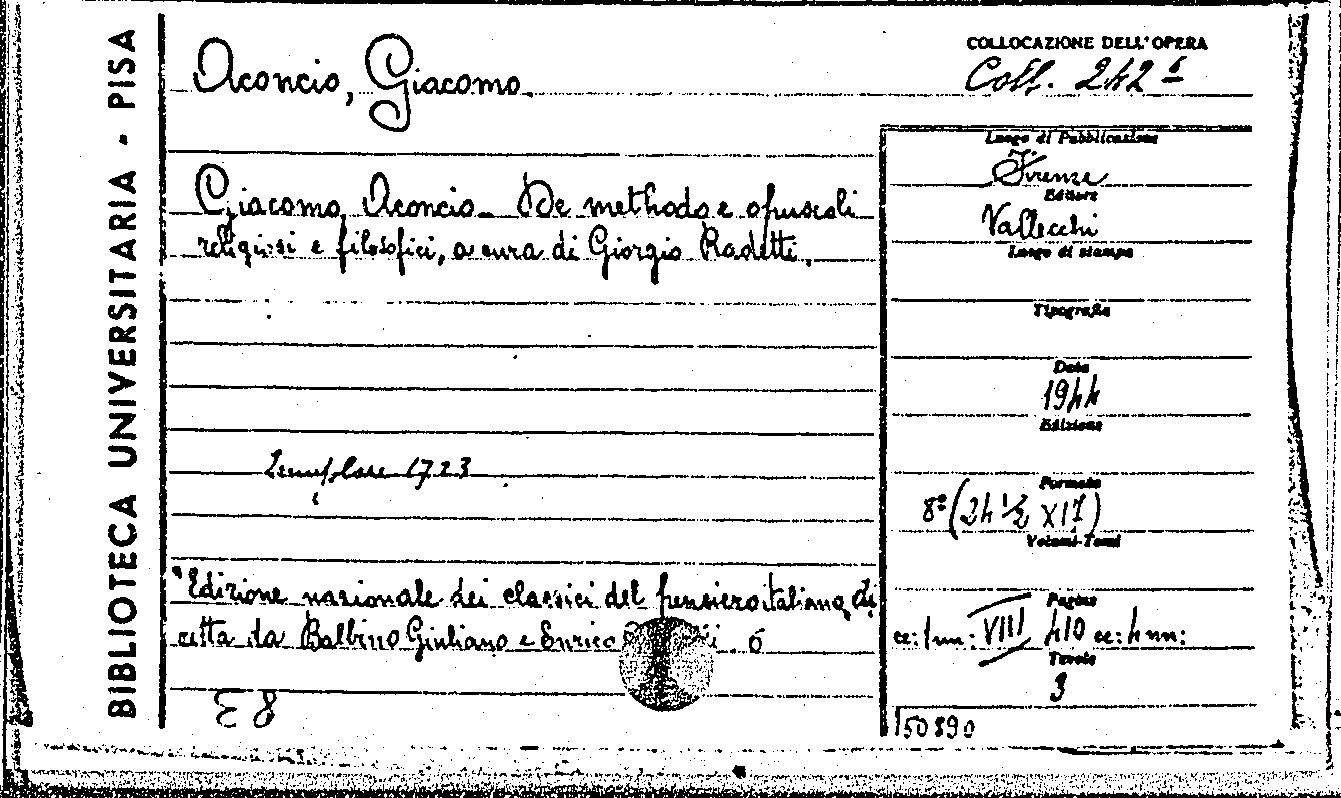 BIBLIOTECA UNIVERSITARIA - PISA
Aconcio, Giacomo.
COLLOCAZIONE DELL'OPERA
Coll. 242 6
Giacomo Aconcio - De methodo e opuscoli
religiosi e filosofici, a cura di Giorgio Radetti.
Esemplare 1723
"Edizione nazionale dei classici del pensiero italiano, di
retta da Balbino Giuliano e Enrico 6
E 8
Luogo di Pubblicazione
Firenze
Editore
Vallecchi
Luogo di stampa
Tipografia
Data
1944
Edizione
Formato
8º (24 1/2 X17)
Volumi-Tomi
Pagine
cc: 1 nn: VIII 410 cc: 4 nn:
Tavole
3
150890